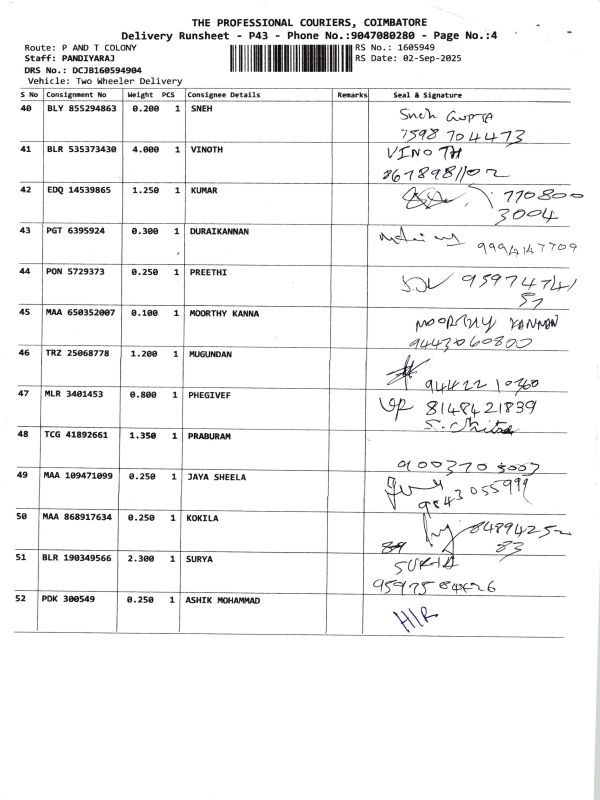 THE PROFESSIONAL COURIERS, COIMBATORE
Delivery Runsheet - P43 - Phone No.:9047080280 - Page No.:4
Route: P AND T COLONY
RS No.: 1605949
Staff: PANDIYARAJ
RS Date: 02-Sep-2025
DRS No.: DCJB160594904
Vehicle: Two Wheeler Delivery
S No Consignment No Weight PCS Consignee Details Remarks Seal & Signature
40 BLY 855294863 0.200 1 SNEH Sneh GUPTA
7598 704473
41 BLR 535373430 4.000 1 VINOTH VINOTH
8678981102
42 EDQ 14539865 1.250 1 KUMAR 770800
3004
43 PGT 6395924 0.300 1 DURAIKANNAN
9994147709
44 PON 5729373 0.250 1 PREETHI 95974741
57
45 MAA 650352007 0.100 1 MOORTHY KANNA MOORTHY KANNAN
9443060800
46 TRZ 25068778 1.200 1 MUGUNDAN
47 MLR 3401453 0.800 1 PHEGIVEF 8148421839
48 TCG 41892661 1.350 1 PRABURAM S. Chitra
49 MAA 109471099 0.250 1 JAYA SHEELA
9843055999
50 MAA 868917634 0.250 1 KOKILA 84894252
83
51 BLR 190349566 2.300 1 SURYA SURIA
52 PDK 300549 0.250 1 ASHIK MOHAMMAD HIR